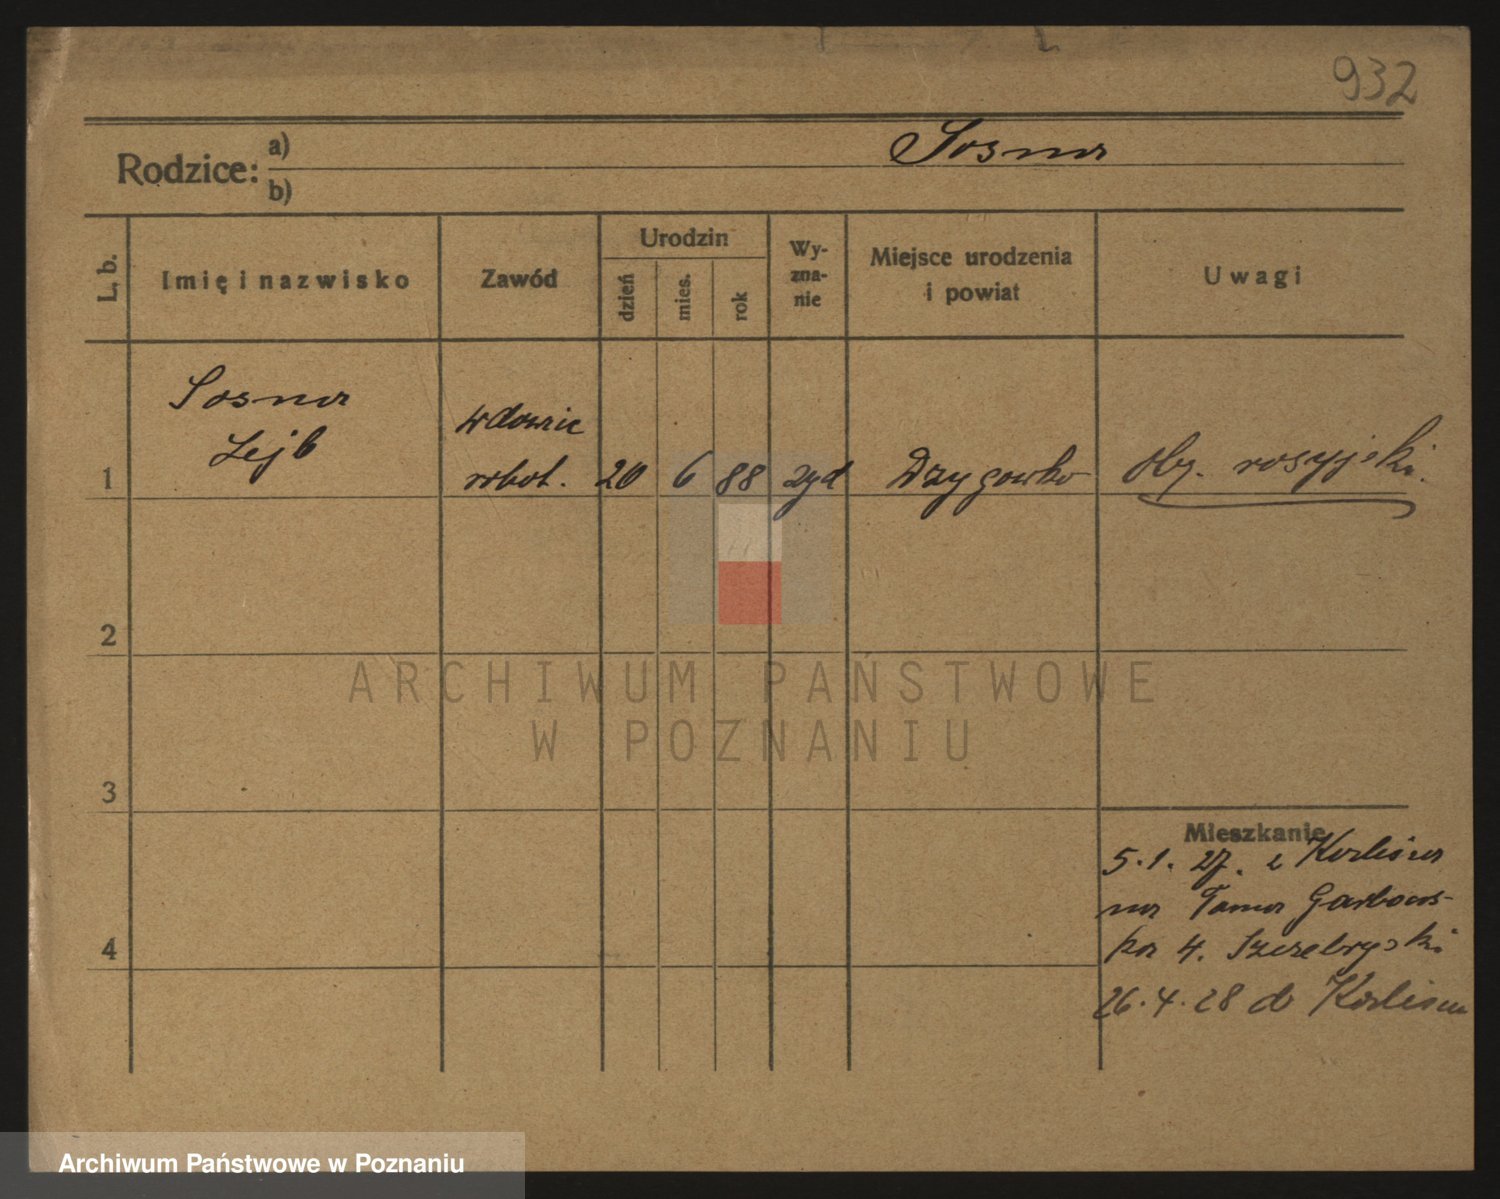 932
Rodzice: a) Sosna
b)
L. b.
Imię i nazwisko
Zawód
Urodzin
dzień
mies.
rok
Wy-
zna-
nie
Miejsce urodzenia
i powiat
Uwagi
Sosna
Lejb
wdowiec
robot.
1
20 6 88 żyd Dzygowko Ob. rosyjski.
2
ARCHIWUM PAŃSTWOWE
W POZNANIU
3
Mieszkanie
5.1.27. z Kalisza
na Tama Garbars-
ka 4.
4
26.4.28 do Kalisza
Archiwum Państwowe w Poznaniu